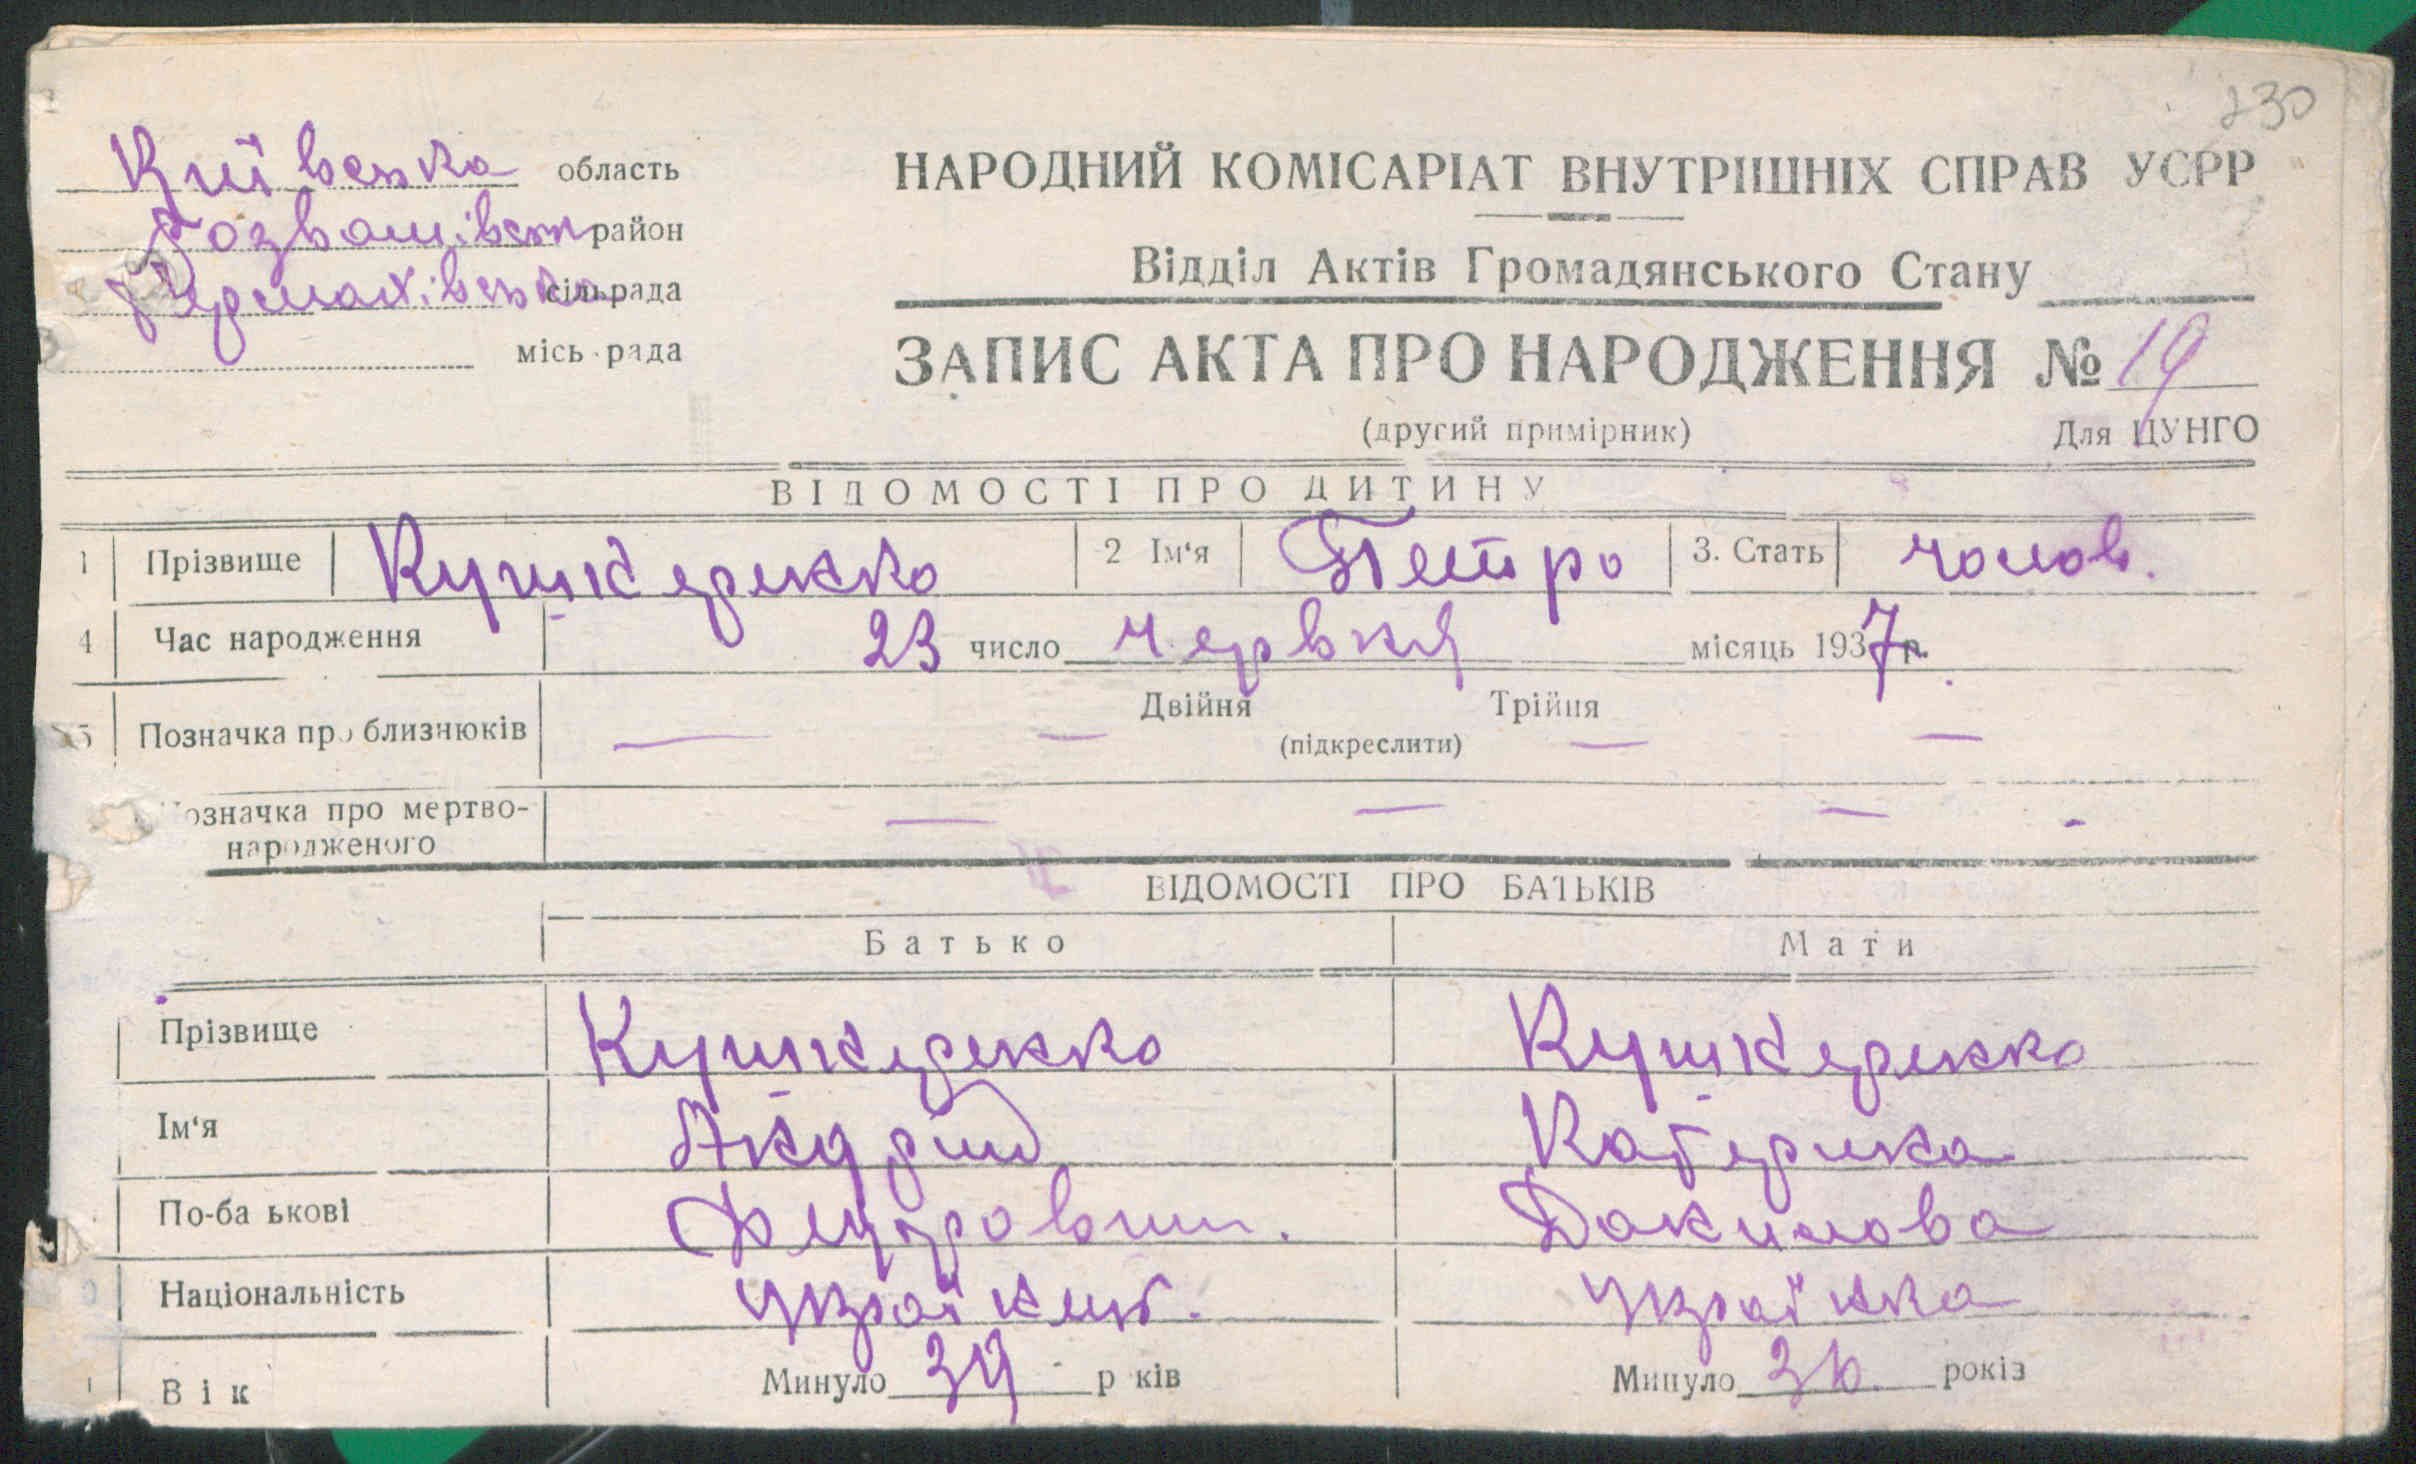 230
Київська область
Розважівськ район
Термахівська сільрада
місь рада
НАРОДНИЙ КОМІСАРІАТ ВНУТРІШНІХ СПРАВ УСРР
Відділ Актів Громадянського Стану
ЗАПИС АКТА ПРО НАРОДЖЕННЯ № 19
(другий примірник) Для ЦУНГО
ВІДОМОСТІ ПРО ДИТИНУ
1 Прізвище Кушнеренко 2 Ім‘я Петро 3. Стать чолов.
4 Час народження 23 число червня місяць 1937 р.
5 Позначка про близнюків — — Двійня Трійня — —
(підкреслити)
Позначка про мертво-
народженого — — — -
ВІДОМОСТІ ПРО БАТЬКІВ
Батько Мати
Прізвище Кушнеренко Кушнеренко
Ім‘я Андрій Катерина
По-ба ькові Федорович. Якимова
Національність Україн. Українка
Вік Минуло 39 р ків Минуло 36 років